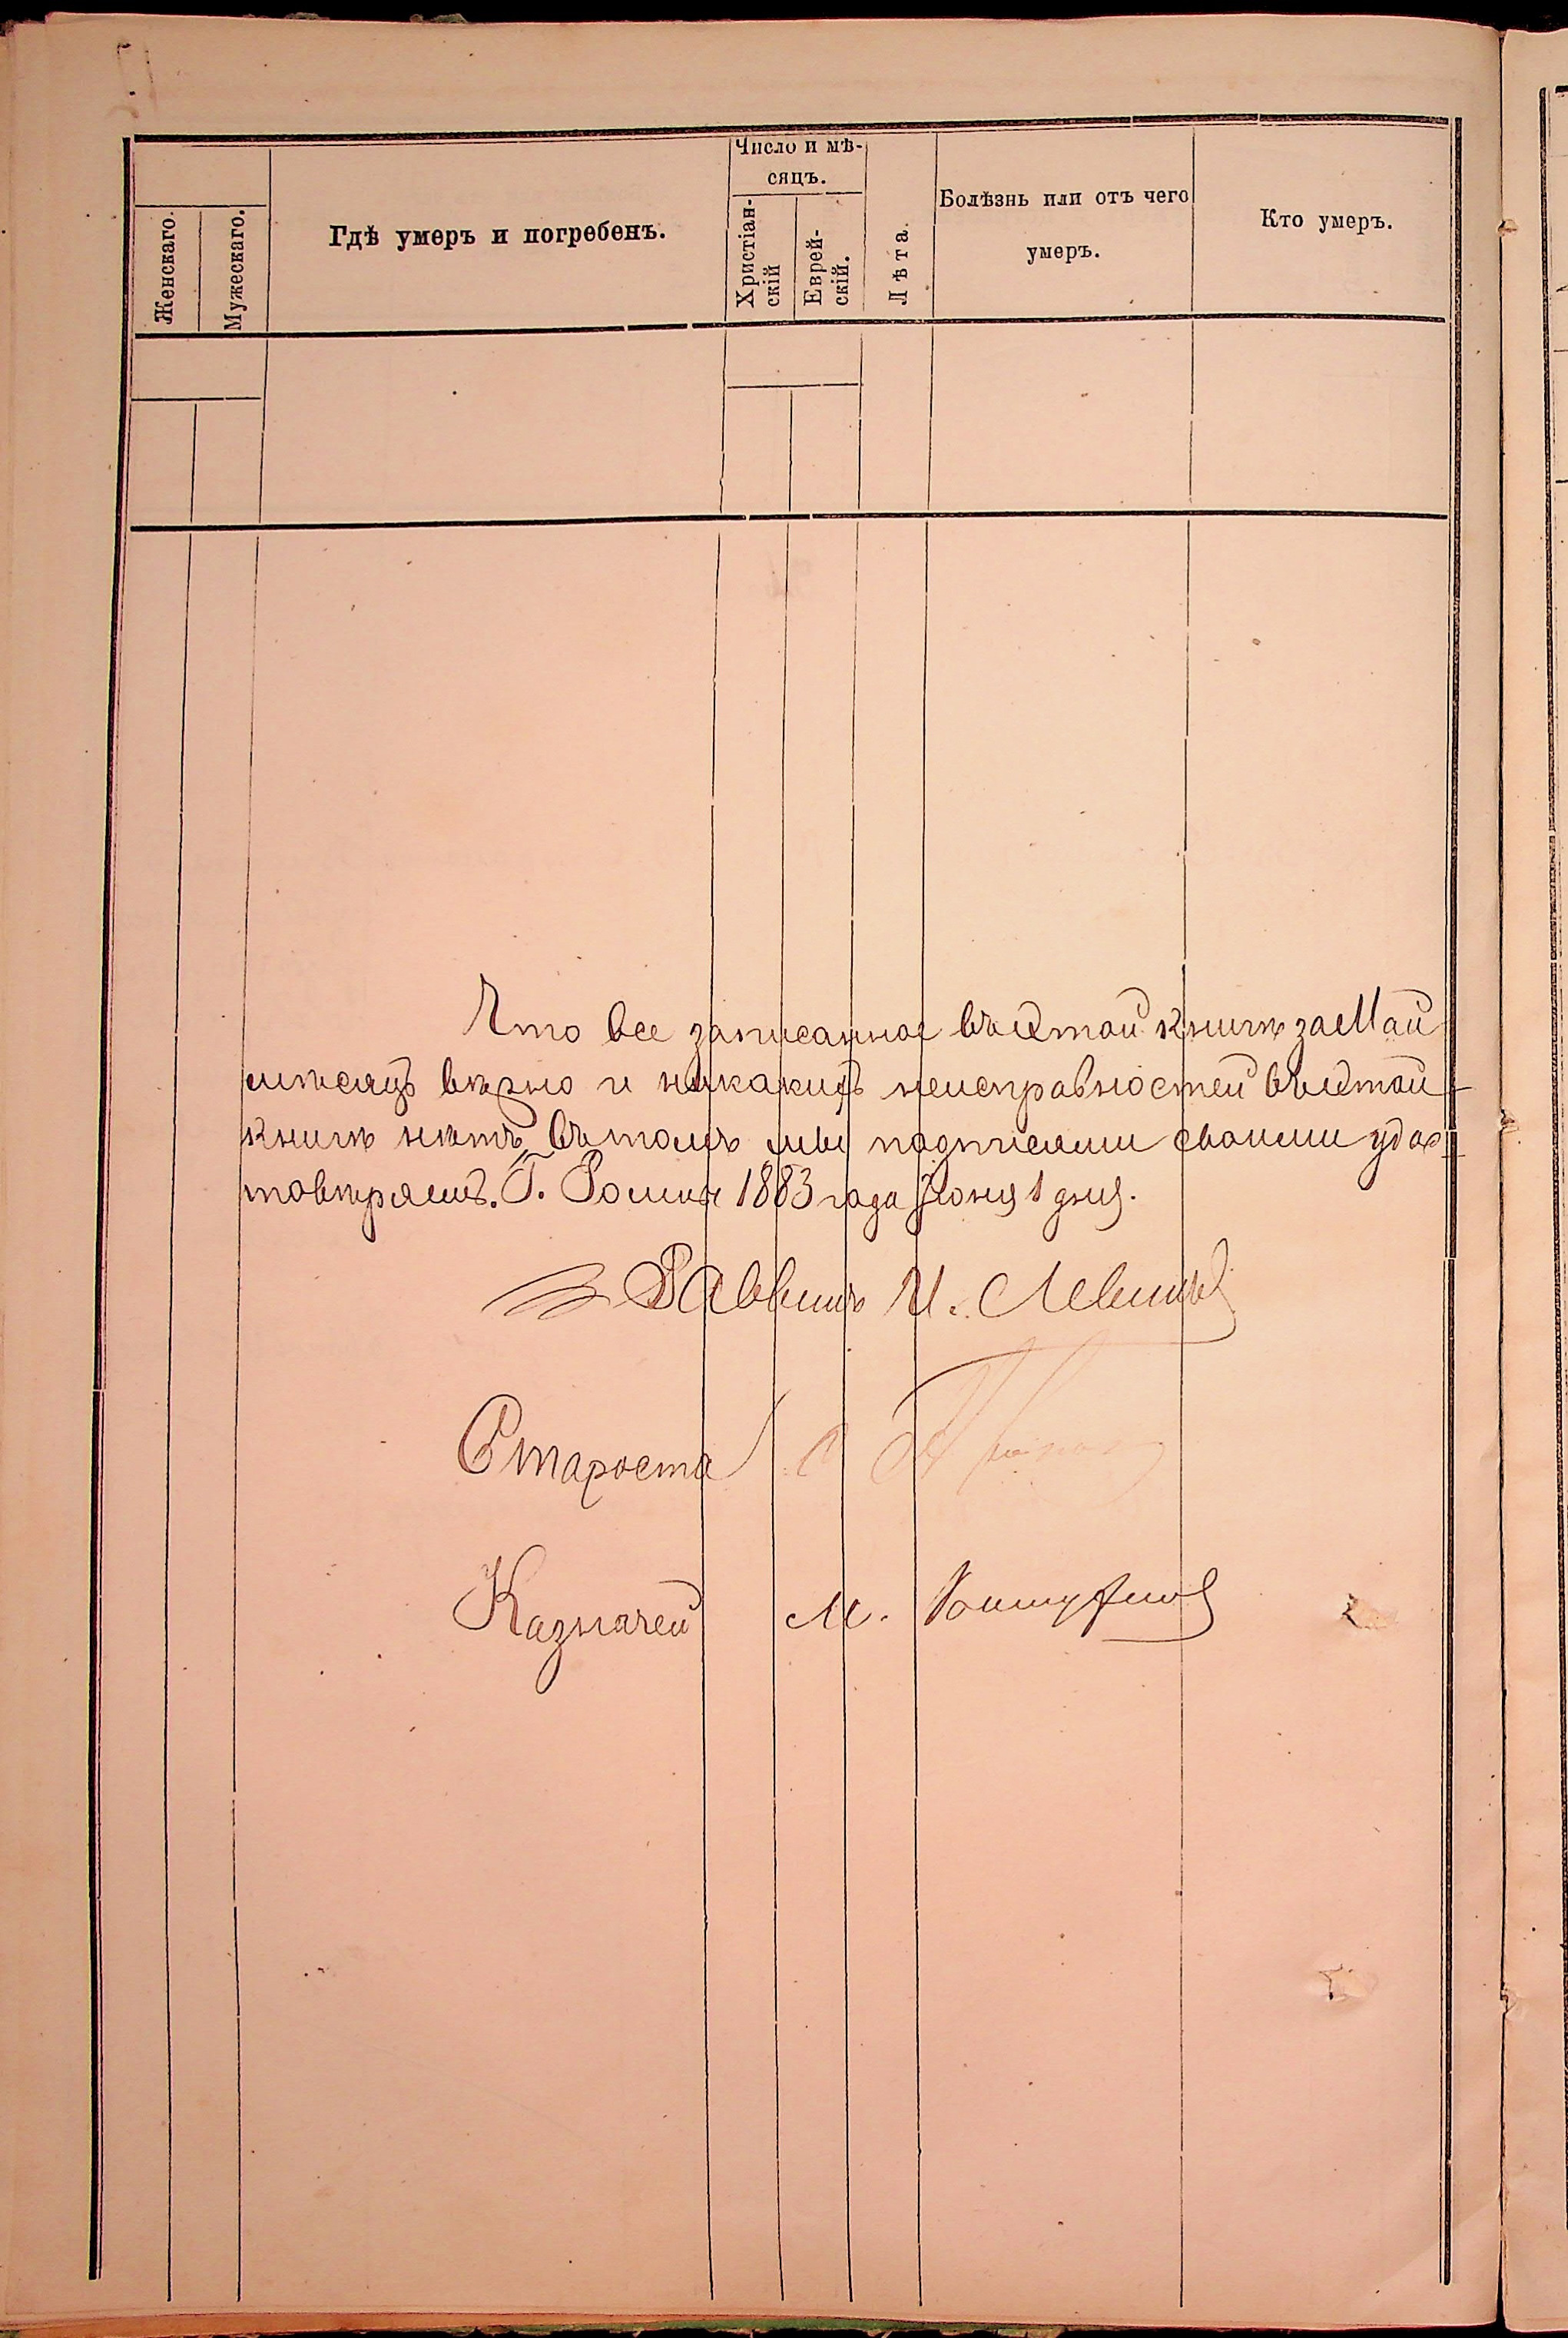 Число и мѣ-
сяцъ.
Женскаго.
Мужескаго.
Гдѣ умеръ и погребенъ.
Христіан-
скій
Еврей-
скій.
Лѣта.
Болѣзнь или отъ чего
умеръ.
Кто умеръ.
Что все записанное въ этой книгѣ за Май
мѣсяцъ вѣрно и никакихъ неисправностей въ этой
книгѣ нѣтъ, въ томъ мы подписями своими удос-
товѣряемъ. Г. Ромны 1883 года Іюня 1 дня.
Раввинъ И. Левинъ
Староста
Казначей М.